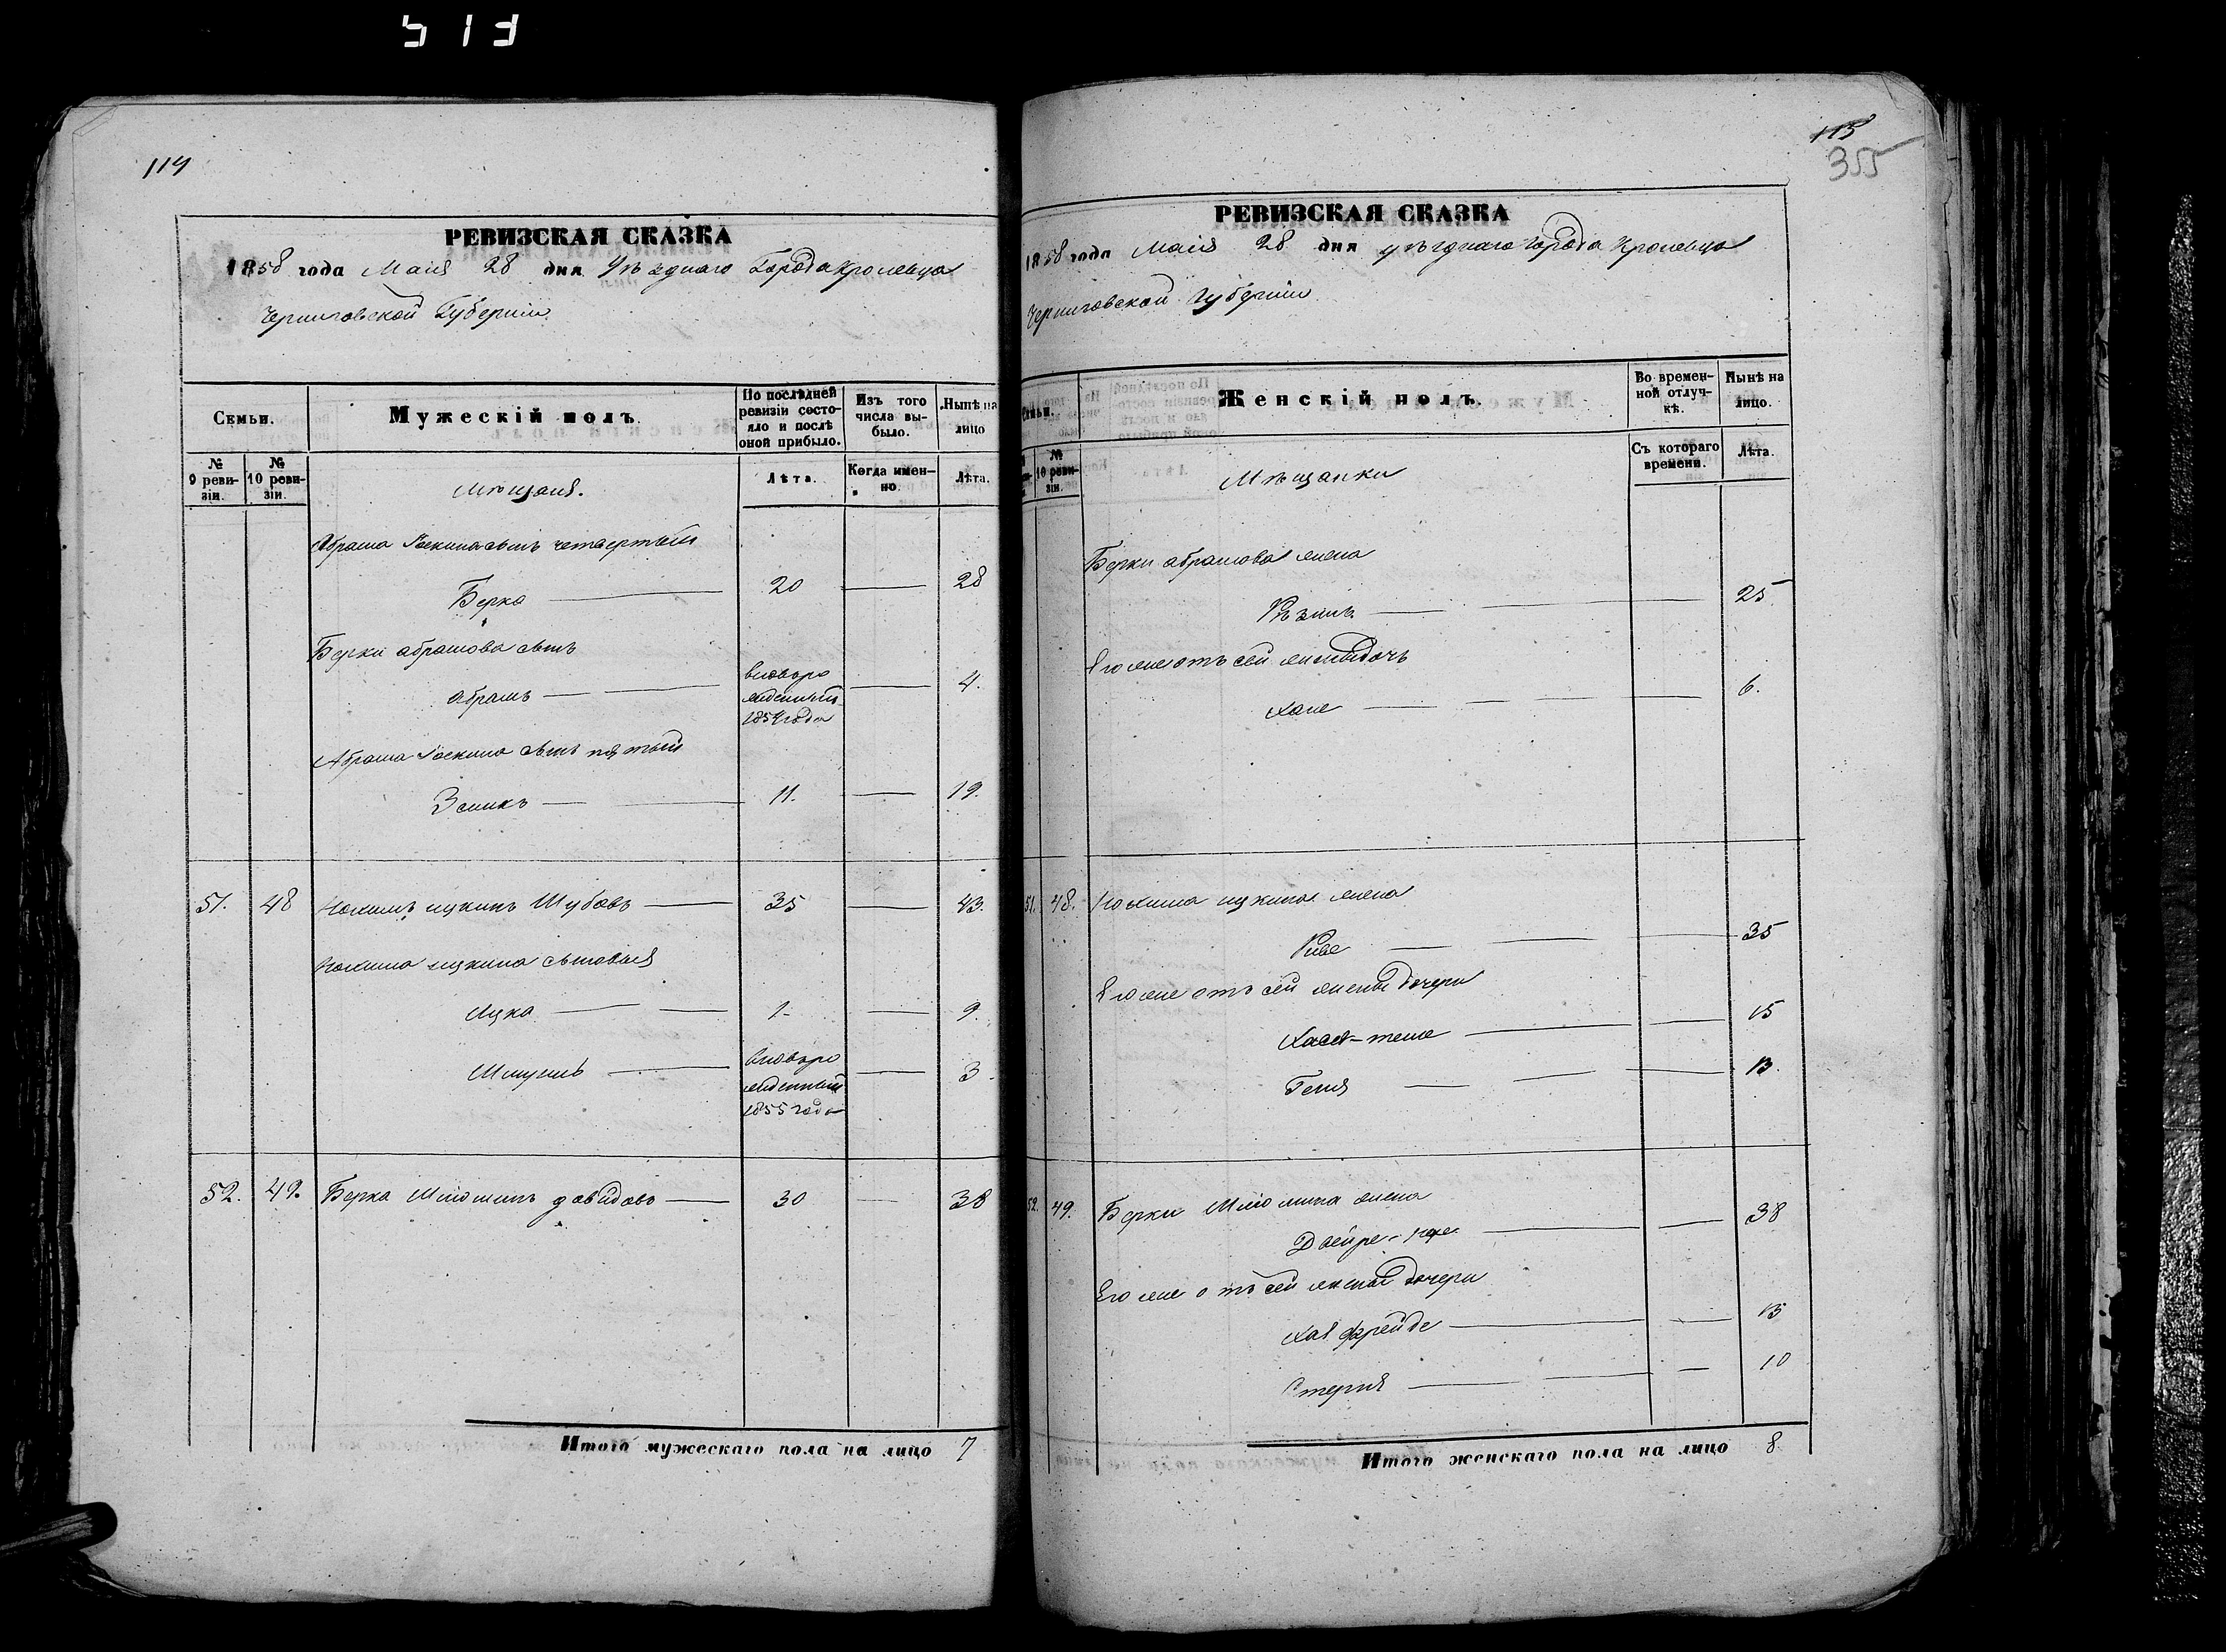 513
114
РЕВИЗСКАЯ СКАЗКА
1858 года Маія 28 дня Уѣзднаго Города Кролевца
Черниговской Губерніи
Семьи.
Мужескій полъ.
По послѣдней ревизіи состояло и послѣ оной прибыло.
Изъ того числа выбыло.
Нынѣ на лицо
№ 9 ревизіи.
№ 10 ревизіи.
Мѣщане.
Лѣта.
Когда именно.
Лѣта.
Абрама сынъ четвертый
Берка 20 28
Берки Абрамова сынъ
Абрамъ вновьрожденный 1854 года 4.
Абрама сынъ пятый
11. 19.
51. 48 Ицкинъ Шубовъ 35 43.
Ицкина сыновья
Ицка 1 9.
Шмуиль вновьрожденный 1855 года 3
52. 49. Берка Давидовъ 30 38
Итого мужескаго пола на лицо 7
115
355
РЕВИЗСКАЯ СКАЗКА
1858 года Маія 28 дня уѣзднаго города Кролевца
Черниговской Губерніи
Женскій полъ.
Во временной отлучкѣ.
Нынѣ на лицо.
№ 10 ревизіи.
Мѣщанки
Съ котораго времени.
Лѣта.
Берки Абрамова жена
25.
Его же отъ сей жены дочь
Хане 6.
51. 48. Ицкина жена
Риве 35
Его же отъ сей жены дочери
15
Геня 13.
52. 49. Берки жена
38
Его же отъ сей жены дочери
Фрейде 13
Стерня 10
Итого женскаго пола на лицо 8